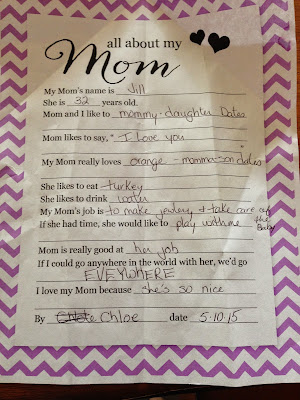 all about my
Mom
My Mom's name is Jill
She is 32 years old.
Mom and I like to mommy-daughter Dates
Mom likes to say, "I love you"
My Mom really loves orange - momma-son dates
She likes to eat turkey
She likes to drink water
My Mom's job is to make jewlery, & take care of the Baby
if she had time, she would like to play with me
Mom is really good at her job
If I could go anywhere in the world with her, we'd go
EVEYWHERE
I love my Mom because she's so nice
By Chloe date 5.10.15